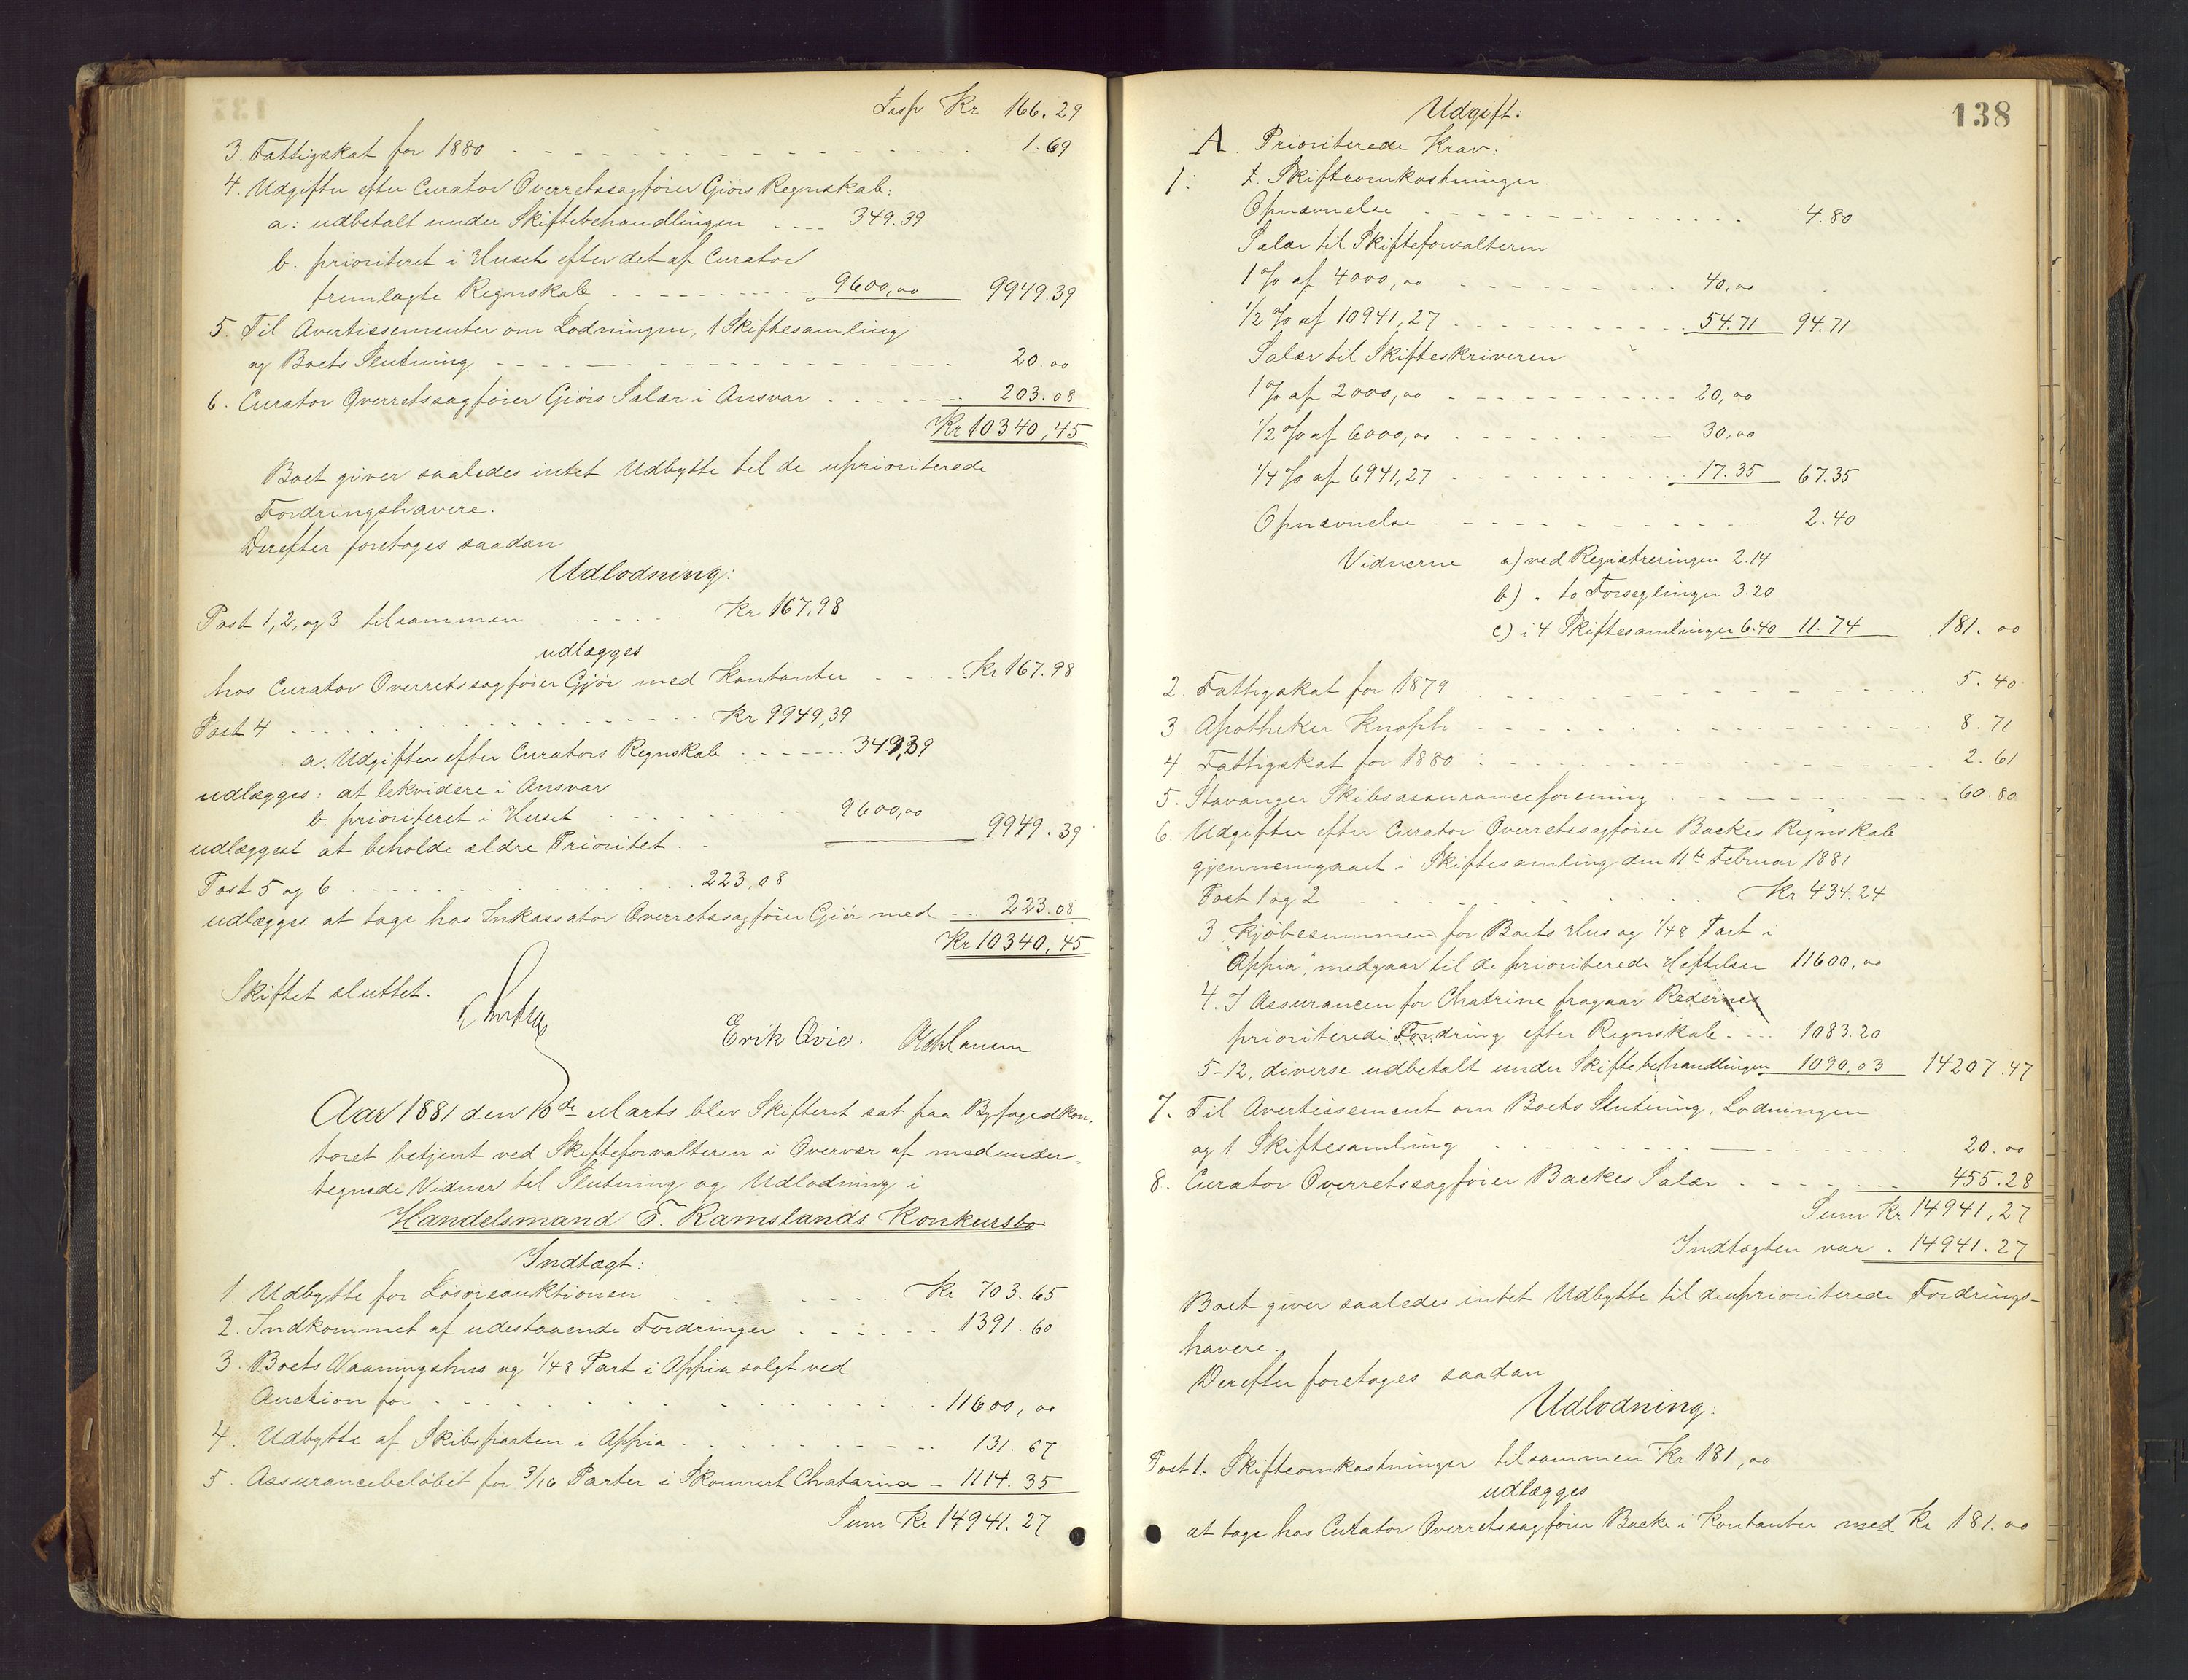 Trsp Kr 166.29
3. Fattigskat for 1880 1.69
4. Udgifter efter Curator Overretssagfører Giörs Regnskab:
a: udbetalt under Skiftebehandlingen 349.39
b: prioriteret i Huset efter det af Curator
fremlagte Regnskab 9600,00 9949.39
5. Til Avertissementer om Lodningen, 1 Skiftesamling
og Boets Slutning 20.00
6. Curator Overretssagfører Giörs Salær i Ansvar 203.08
Kr 10340,45
Boet giver saaledes intet Udbytte til de uprioriterede
Fordringshavere.
Derefter foretoges saadan
Udlodning:
Post 1, 2, og 3 tilsammen Kr 167,98
udlægges
hos Curator Overretssagfører Gjör med Kontanter Kr 167.98
Post 4 Kr 9949,39
a. Udgifter efter Curators Regnskab 349,39
udlægges: at lekvidere i Ansvar
b. prioriteret i Huset 9600,00
udlægges at beholde ældre Prioritet 9949.39
Post 5 og 6 223,08
udlægges at tage hos Inkassator Overretssagfører Giör med 223.08
Kr 10340,45
Skiftet sluttet.
Erik Qvie.
Aar 1881 den 10de Marts blev Skifteret sat paa Byfogedkon-
toret betjent ved Skifteforvalteren i Overvær af medunder-
tegnede Vidner til Slutning og Udlodning i
Handelsmand T. Ramslands Konkursbo
Indtægt:
1. Udbytte for Lösöreauktionen Kr 703.65
2. Indkommet af udestaaende Fordringer 1391.60
3. Boets Vaaningshus og 1/48 Part i Appia solgt ved
Auction for 11600,00
4. Udbytte af Skibsparten i Appia 131.67
5. Assurancebelöbet for 3/16 Parter i Skonnert Chatarina 1114.35
Sum Kr 14941.27
138
Udgift:
A. Prioriterede Krav:
1: Skifteomkostninger.
Opnævnelse 4.80
Salær til Skifteforvalteren
1 % af 4000,00 40,00
1/2 % af 10941,27 54.71 94.71
Salær til Skifteskriveren
1 % af 2000,00 20,00
1/2 % af 6000,00 30,00
1/4 % af 6941,27 17.35 67.35
Opnævnelse 2.40
Vidnerne a) ved Registreringen 2.14
b) " to Forseglinger 3.20
c) i 4 Skiftesamlinger 6.40 11.74 181.00
2. Fattigskat for 1879 5.40
3. Apotheker Knoph 8.71
4. Fattigskat for 1880 2.61
5. Stavanger Skibsassuranceforening 60.80
6. Udgifter efter Curator Overretssagfører Backes Regnskab
gjennemgaaet i Skiftesamling den 11te Februar 1881
Post 1 og 2 Kr 434.24
3 Kjöbesummen for Boets Hus og 1/48 Part i
"Appia", medgaar til de prioriterede Heftelser 11600,00
4. I Assurancen for Chatrine fragaar Redernes
prioriterede Fordring efter Regnskab 1083.20
5-12, diverse udbetalt under Skiftebehandlingen 1090,03 14207.47
7. Til Avertissement om Boets Slutning, Lodningen
og 1 Skiftesamling 20.00
8. Curator Overretssagfører Backes Salær 455.28
Sum Kr 14941,27
Indtægten var 14941.27
Boet giver saaledes intet Udbytte til de uprioriterede Fordrings-
havere.
Derefter foretoges saadan
Udlodning:
Post 1. Skifteomkostninger tilsammen Kr 181,00
udlægges
at tage hos Curator Overretssagfører Backe i Kontanter med Kr 181.00